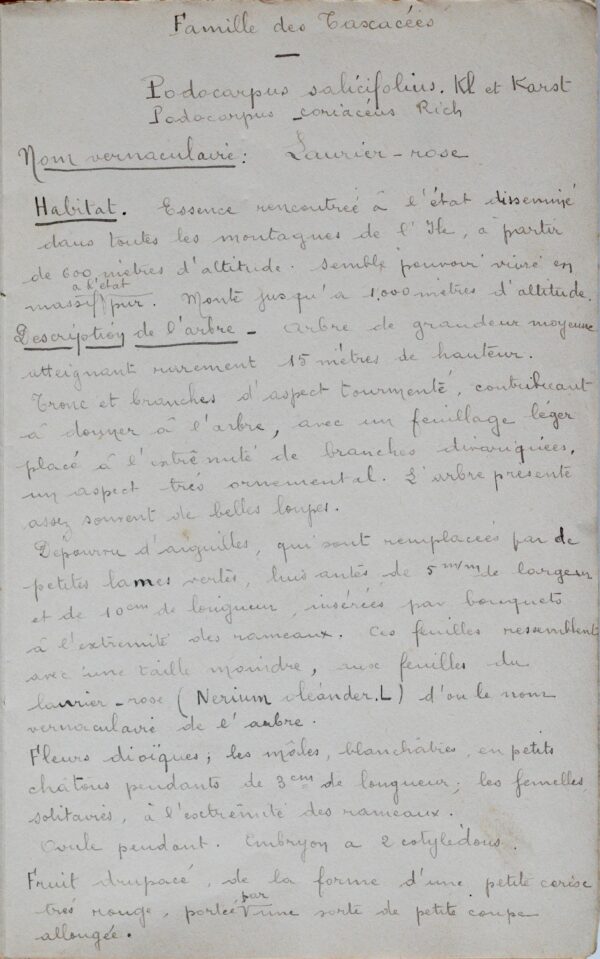 Famille des Taxacées
Podocarpus salicifolius. Kl et Karst
Podocarpus coriacéus Rich
Nom vernaculaire : Laurier-rose
Habitat. Essence rencontrée à l'état disséminé
dans toutes les montagnes de l'Ile, à partir
de 600 mètres d'altitude. Semble pouvoir vivre en
à l'état
massif pur. Monte jusqu'à 1,000 mètres d'altitude.
Description de l'arbre - Arbre de grandeur moyenne
atteignant rarement 15 mètres de hauteur.
Tronc et branches d'aspect tourmenté, contribuant
à donner à l'arbre, avec un feuillage léger
placé à l'extrêmité de branches divariquées,
un aspect très ornemental. L'arbre présente
assez souvent de belles loupes.
Dépourvu d'aiguilles, qui sont remplacées par de
petites lames vertes, luisantes de 5 m/m de largeur
et de 10 cm de longueur, insérées par bouquets
à l'extremité des rameaux. Ces feuilles ressemblent
avec une taille moindre, aux feuilles du
laurier-rose (Nerium oléander.L) d'où le nom
vernaculaire de l'arbre.
Fleurs dioïques ; les mâles, blanchâtres, en petits
châtons pendants de 3 cm de longueur ; les femelles
solitaires, à l'extrêmité des rameaux.
Ovule pendant. Embryon a 2 cotylédons.
Fruit drupacé, de la forme d'une petite cerise
très rouge, portée par une sorte de petite coupe
allongée.